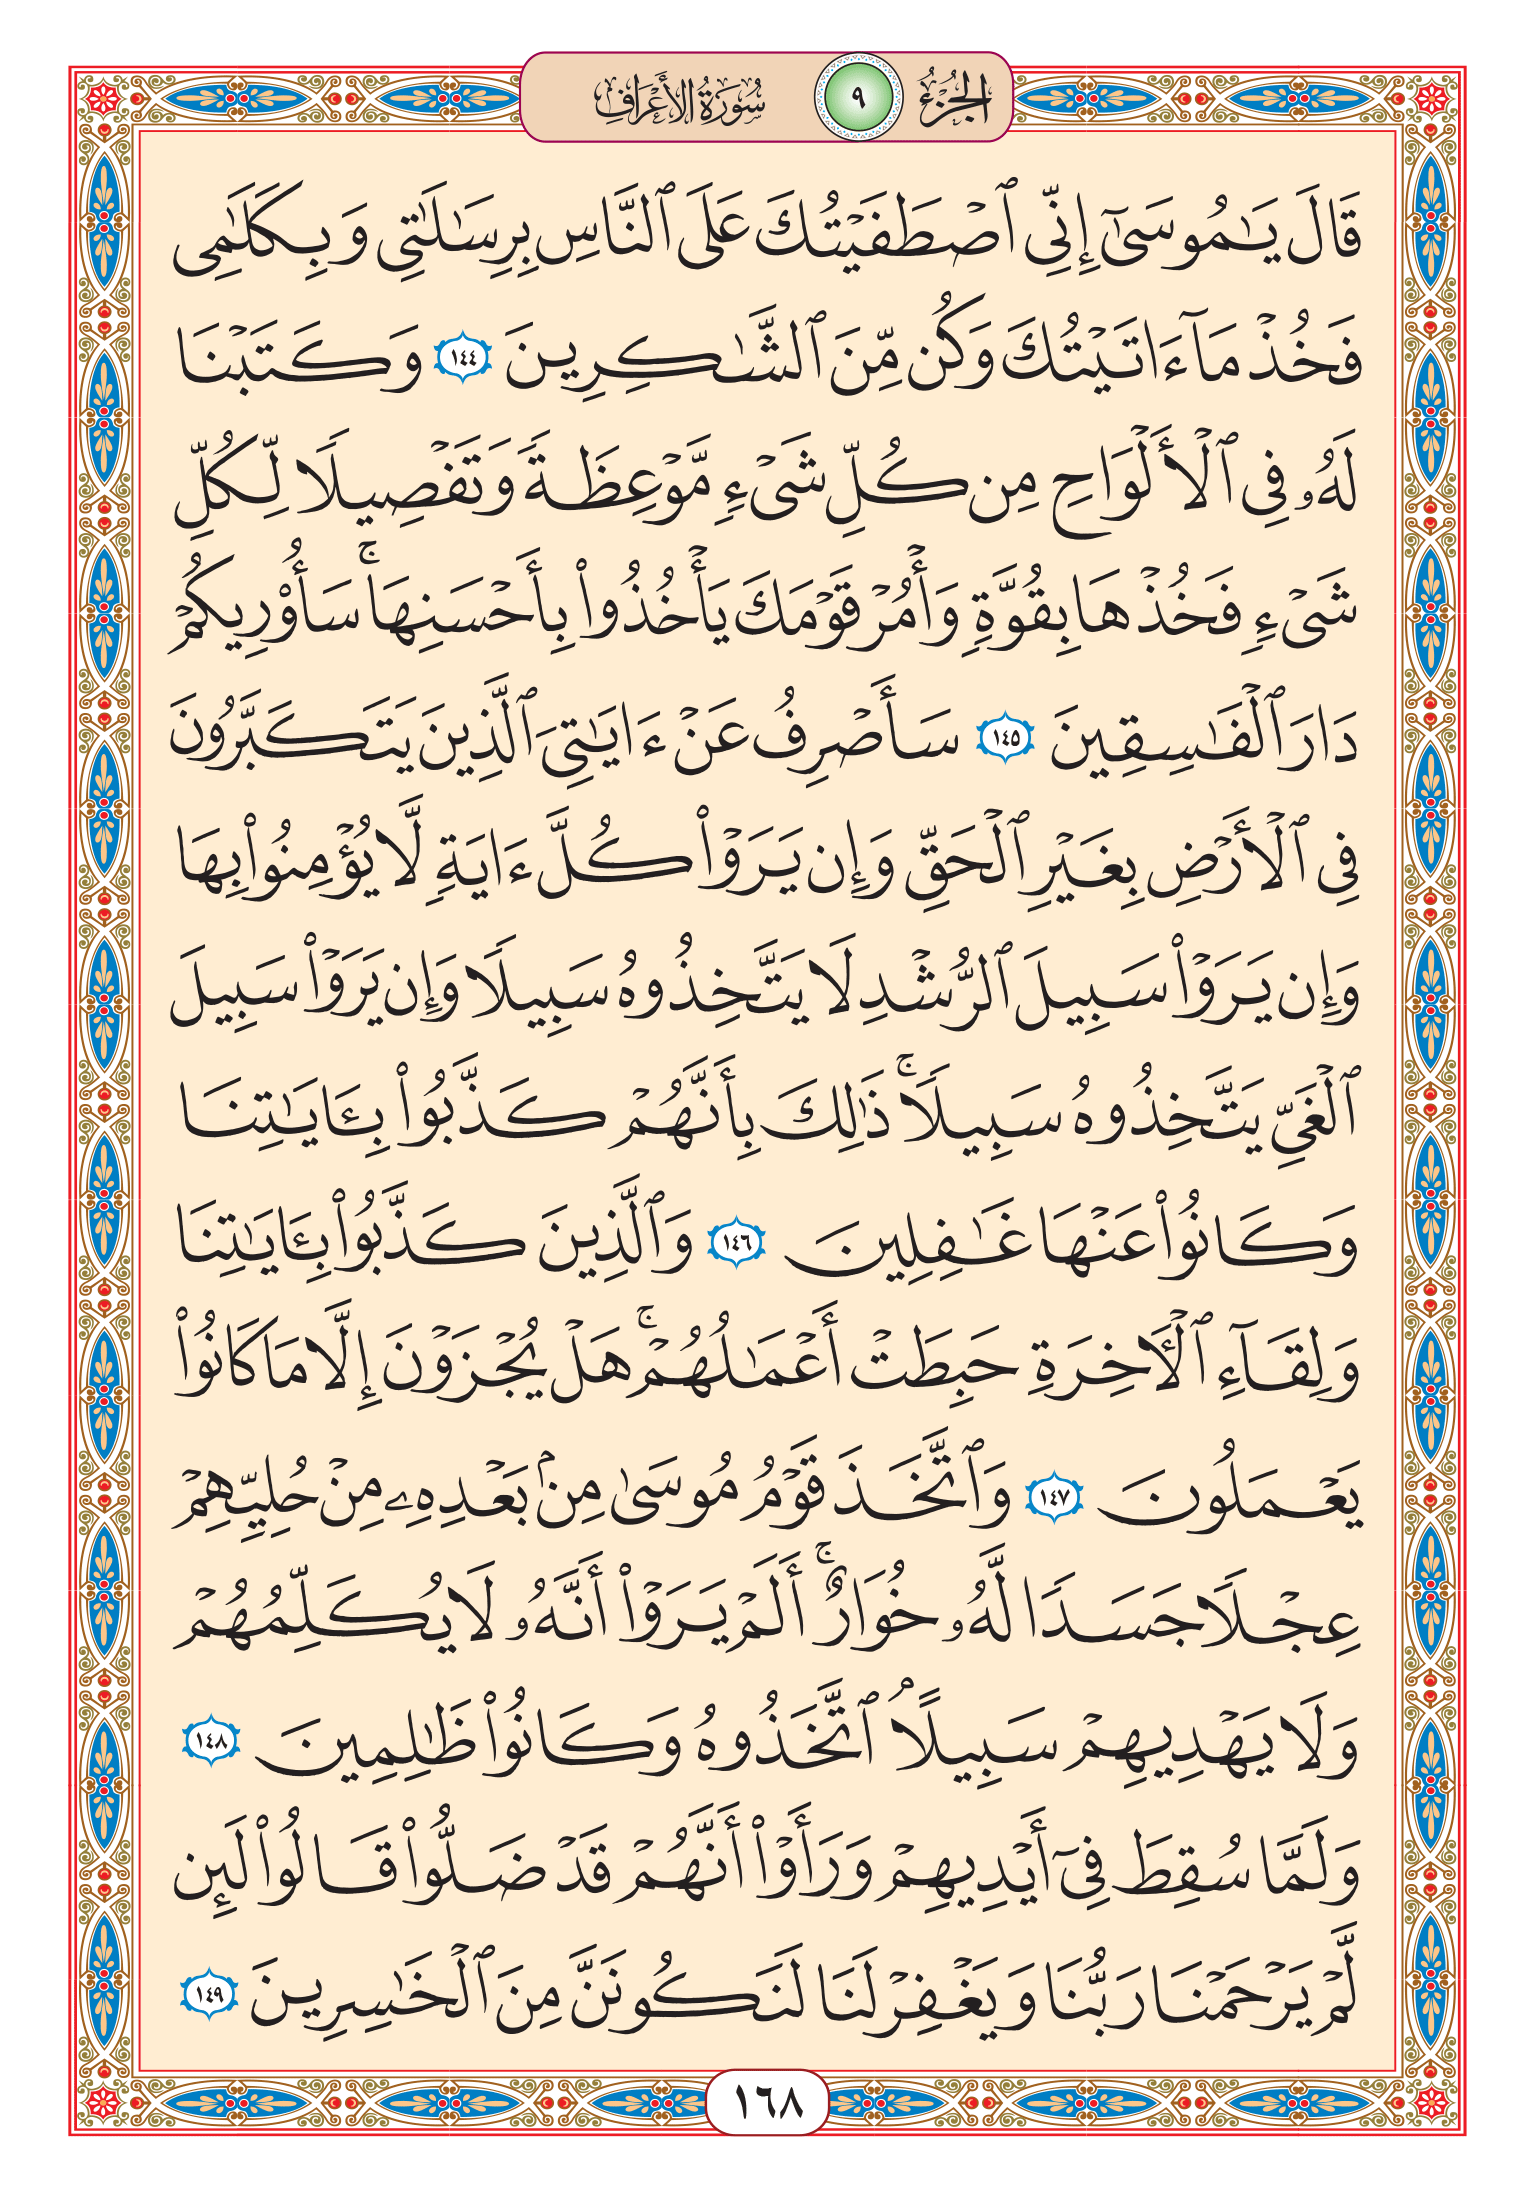 الجزء ٩ سورة الأعراف
قَالَ يَٰمُوسَىٰٓ إِنِّى ٱصْطَفَيْتُكَ عَلَى ٱلنَّاسِ بِرِسَٰلَٰتِى وَبِكَلَٰمِى
فَخُذْ مَآ ءَاتَيْتُكَ وَكُن مِّنَ ٱلشَّٰكِرِينَ ١٤٤ وَكَتَبْنَا
لَهُۥ فِى ٱلْأَلْوَاحِ مِن كُلِّ شَىْءٍ مَّوْعِظَةً وَتَفْصِيلًا لِّكُلِّ
شَىْءٍ فَخُذْهَا بِقُوَّةٍ وَأْمُرْ قَوْمَكَ يَأْخُذُوا۟ بِأَحْسَنِهَا ۚ سَأُو۟رِيكُمْ
دَارَ ٱلْفَٰسِقِينَ ١٤٥ سَأَصْرِفُ عَنْ ءَايَٰتِىَ ٱلَّذِينَ يَتَكَبَّرُونَ
فِى ٱلْأَرْضِ بِغَيْرِ ٱلْحَقِّ وَإِن يَرَوْا۟ كُلَّ ءَايَةٍ لَّا يُؤْمِنُوا۟ بِهَا
وَإِن يَرَوْا۟ سَبِيلَ ٱلرُّشْدِ لَا يَتَّخِذُوهُ سَبِيلًا وَإِن يَرَوْا۟ سَبِيلَ
ٱلْغَىِّ يَتَّخِذُوهُ سَبِيلًا ۚ ذَٰلِكَ بِأَنَّهُمْ كَذَّبُوا۟ بِـَٔايَٰتِنَا
وَكَانُوا۟ عَنْهَا غَٰفِلِينَ ١٤٦ وَٱلَّذِينَ كَذَّبُوا۟ بِـَٔايَٰتِنَا
وَلِقَآءِ ٱلْـَٔاخِرَةِ حَبِطَتْ أَعْمَٰلُهُمْ ۚ هَلْ يُجْزَوْنَ إِلَّا مَا كَانُوا۟
يَعْمَلُونَ ١٤٧ وَٱتَّخَذَ قَوْمُ مُوسَىٰ مِنۢ بَعْدِهِۦ مِنْ حُلِيِّهِمْ
عِجْلًا جَسَدًا لَّهُۥ خُوَارٌ ۚ أَلَمْ يَرَوْا۟ أَنَّهُۥ لَا يُكَلِّمُهُمْ
وَلَا يَهْدِيهِمْ سَبِيلًا ۘ ٱتَّخَذُوهُ وَكَانُوا۟ ظَٰلِمِينَ ١٤٨
وَلَمَّا سُقِطَ فِىٓ أَيْدِيهِمْ وَرَأَوْا۟ أَنَّهُمْ قَدْ ضَلُّوا۟ قَالُوا۟ لَئِن
لَّمْ يَرْحَمْنَا رَبُّنَا وَيَغْفِرْ لَنَا لَنَكُونَنَّ مِنَ ٱلْخَٰسِرِينَ ١٤٩
١٦٨